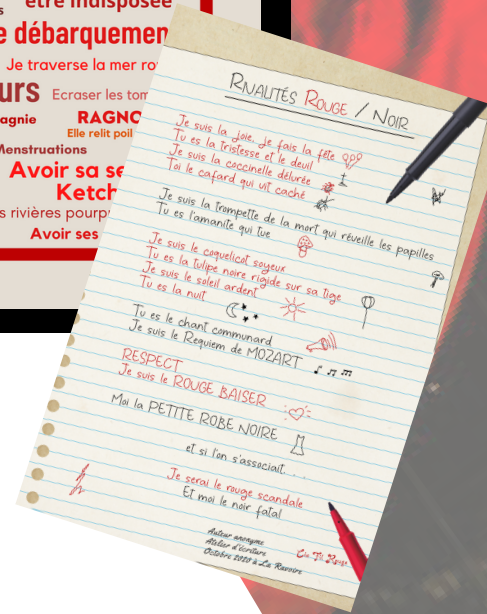 être indisposée
débarquemen
Je traverse la mer ro
urs
Ecraser les tom
agnie
RAGNO
Elle relit poil
Menstruations
Avoir sa se
Ketch
s rivières pourp
Avoir ses
RIVAUTÉS ROUGE / NOIR
Je suis la joie, je fais la fête
Tu es la tristesse et le deuil
Je suis la coccinelle délurée
Toi le cafard qui vit caché
Je suis la trompette de la mort qui réveille les papilles
Tu es l'amanite qui tue
Je suis le coquelicot soyeux
Tu es la tulipe noire rigide sur sa tige
Je suis le soleil ardent
Tu es la nuit
Tu es le chant communard
Je suis le Requiem de MOZART
RESPECT
Je suis le ROUGE BAISER
Moi la PETITE ROBE NOIRE
et si l'on s'associait. . .
Je serai le rouge scandale
Et moi le noir fatal
Auteur anonyme
Atelier d'écriture
Octobre 2020 à La Ravoire